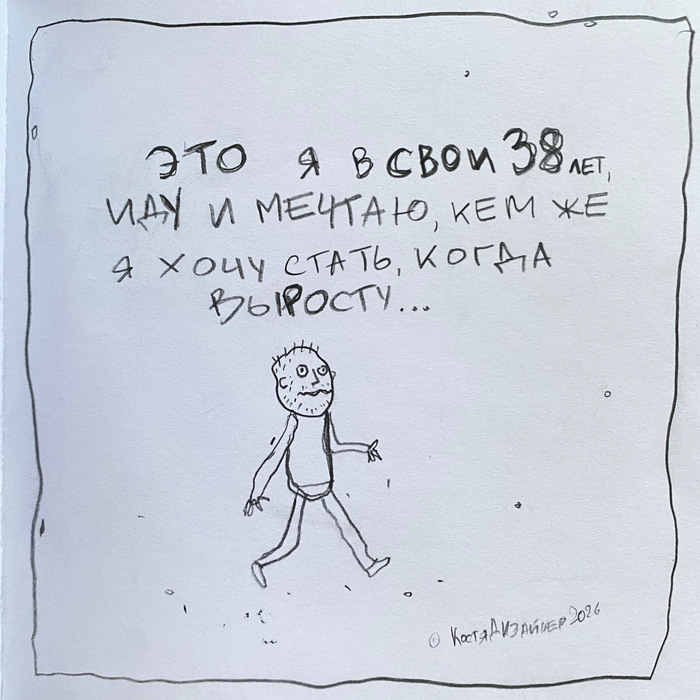 ЭТО Я В СВОИ 38 ЛЕТ,
ИДУ И МЕЧТАЮ, КЕМ ЖЕ
Я ХОЧУ СТАТЬ, КОГДА
ВЫРОСТУ...
© КОСТЯ ДИЗАЙНЕР 2026